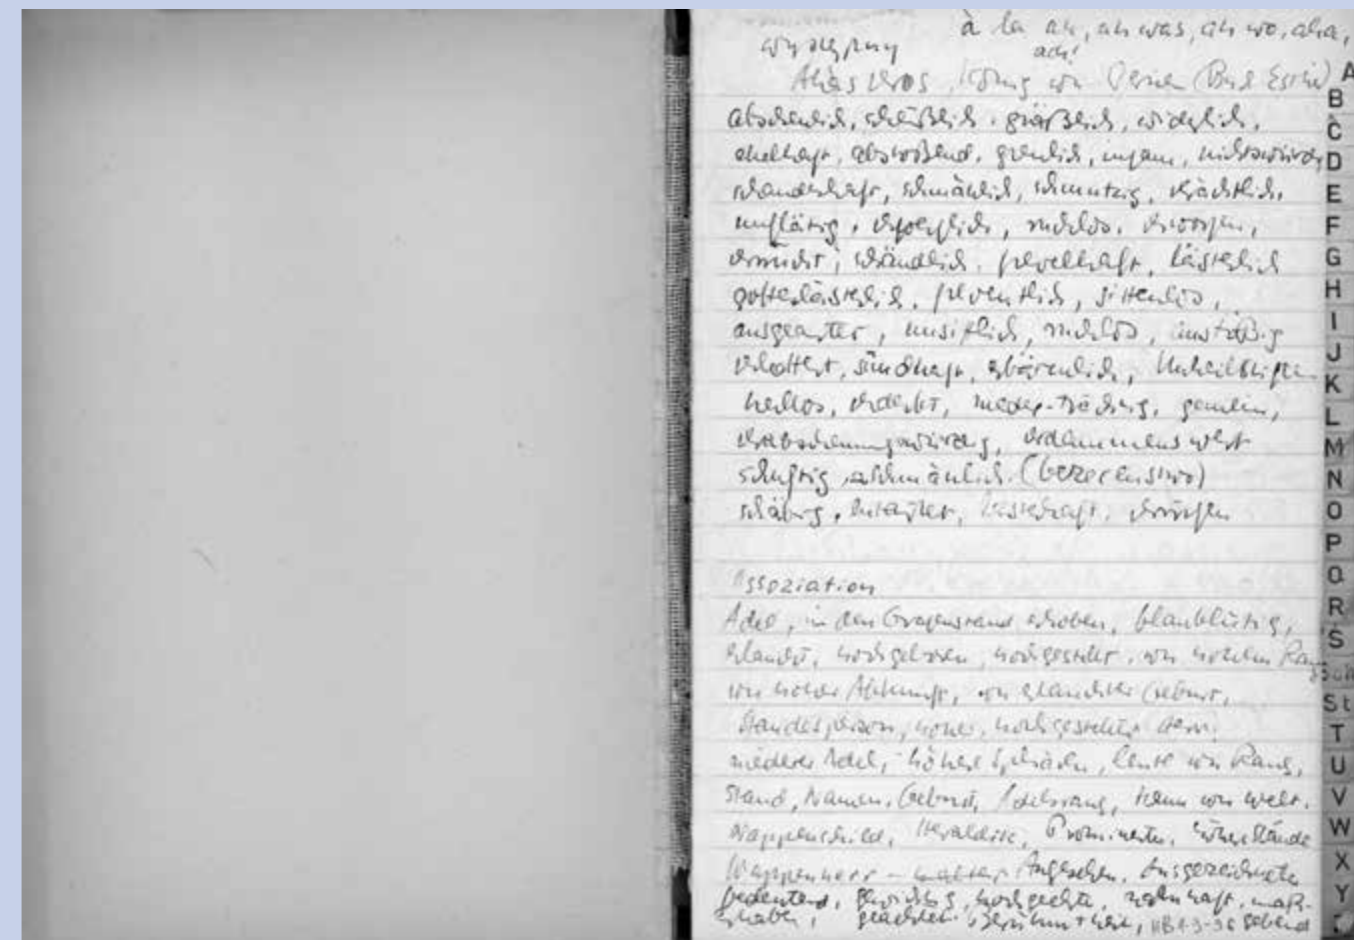 à la an, an was, an wo, aha,
ach!
Ahasveros, König von Persien (Buch Esther)
abscheulich, scheußlich, gräßlich, widerlich,
ekelhaft, abstoßend, greulich, infam, nichtswürdig
schandhaft, schmählich, schmutzig, verächtlich,
unflätig, verwerflich, ruchlos, verworfen,
verrucht, schändlich, frevelhaft, lästerlich
gotteslästerlich, freventlich, sittenlos,
ausgeartet, unsittlich, ruchlos, anstößig
verlottert, sündhaft, erbärmlich,
heillos, verderbt, nieder-trächtig, gemein,
verabscheuungswürdig, verdammenswert
schuftig
schäbig, entartet, lasterhaft,
Assoziation
Adel, in den Grafenstand erhoben, blaublütig,
erlaucht, hochgeboren, hochgestellt, von hohem Rang
von hoher Abkunft, von erlauchter Geburt,
Standesperson, hoher, hochgestellter Herr,
niederer Adel, höhere Sphären, Leute von Rang,
Stand, Namen, Geburt, Adelsrang, Mann von Welt,
Wappenschild, Heraldik, Prominente, höhere Stände
Wappenherr Angesehen, Ausgezeichnete
bedeutend, gewichtig, hochgeehrt, nahmhaft, maß-
erhaben, geachtet, berühmt sein, gebend
A
B
C
D
E
F
G
H
I
J
K
L
M
N
O
P
Q
R
S
Sch
St
T
U
V
W
X
Y